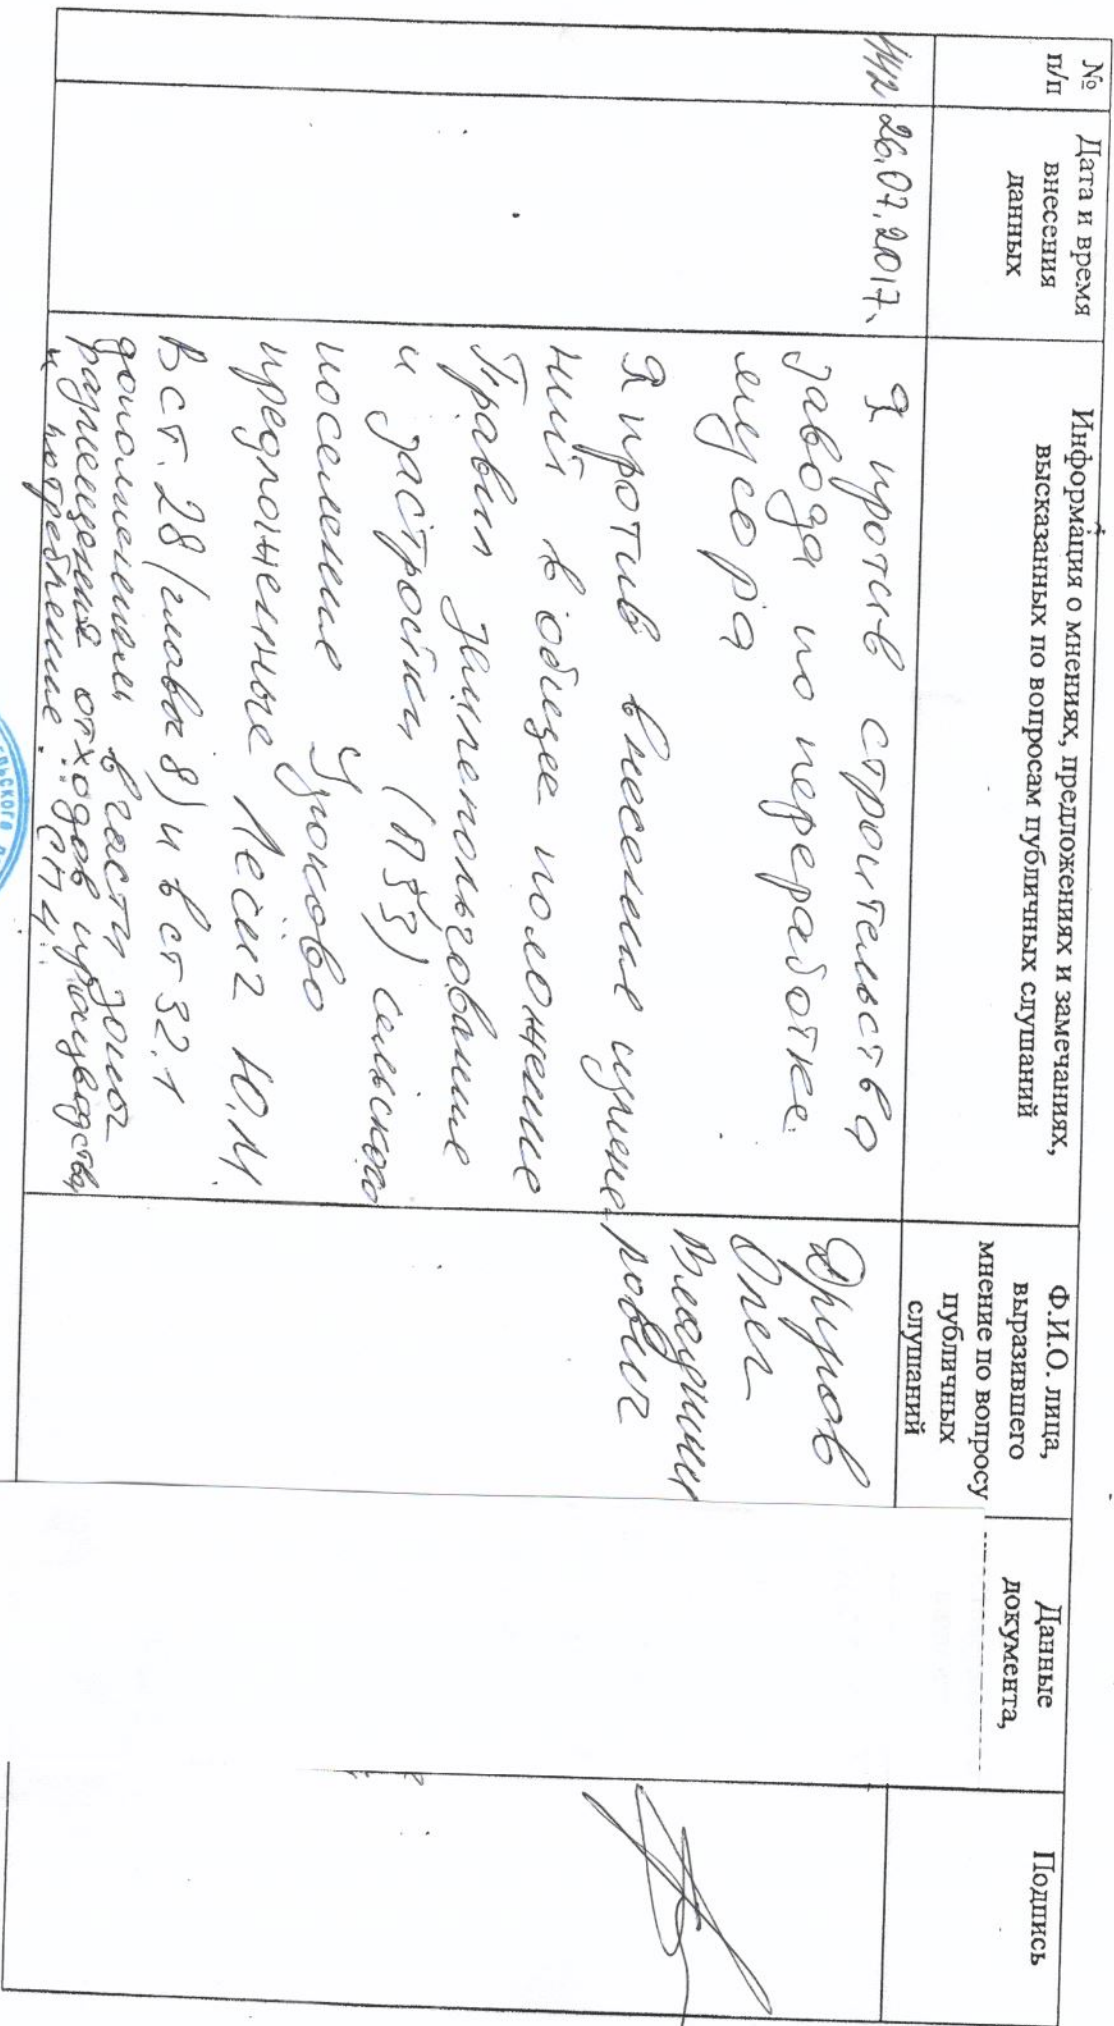 №
п/п
Дата и время
внесения
данных
Информация о мнениях, предложениях и замечаниях,
высказанных по вопросам публичных слушаний
Ф.И.О. лица,
выразившего
мнение по вопросу
публичных
слушаний
Данные
документа,
Подпись
26.07.2017.
Я против строительства
завода по переработке
мусора
Я против внесение измене-
ний в общее положение
Правил Землепользование
и застройки (ПЗЗ) сельского
поселение Ульково
предложенные Лесиг Ю.М.
В ст. 28 (глава 8) и в ст 32.1
дополнением в части зоног
размещения отходов производства,
и потребление. СП4
Олег
Владими
рович
льского